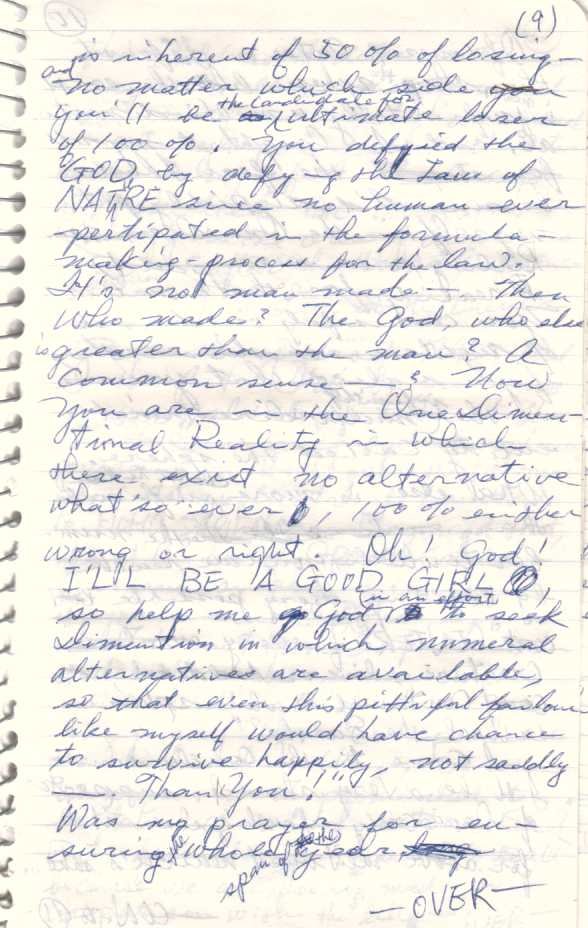 (9)
is inherent of 50 % of losing –
and no matter which side
you'll be the candidate for ultimate loser
of 100 %. You defyied the
GOD, by defy-g the Law of
NATRE since no human ever
pertipated in the formula –
making-process for the law.
It's not man made – Then
who made? The God, who else
is greater than the man? A
Common sense —! Now
you are in the One Dimen-
tional Reality in which
there exist no alternative
what so ever, 100 % either
wrong or right. Oh! God!
I'LL BE A GOOD GIRL,
so help me God in an effort to seek
Dimention in which numeral
alternatives are available,
so that even this pittiful failour
like myself would have chance
to survive happily, not saddly
— Than You!"
Was my prayer for en-
suring the whole span of the year.
— OVER —